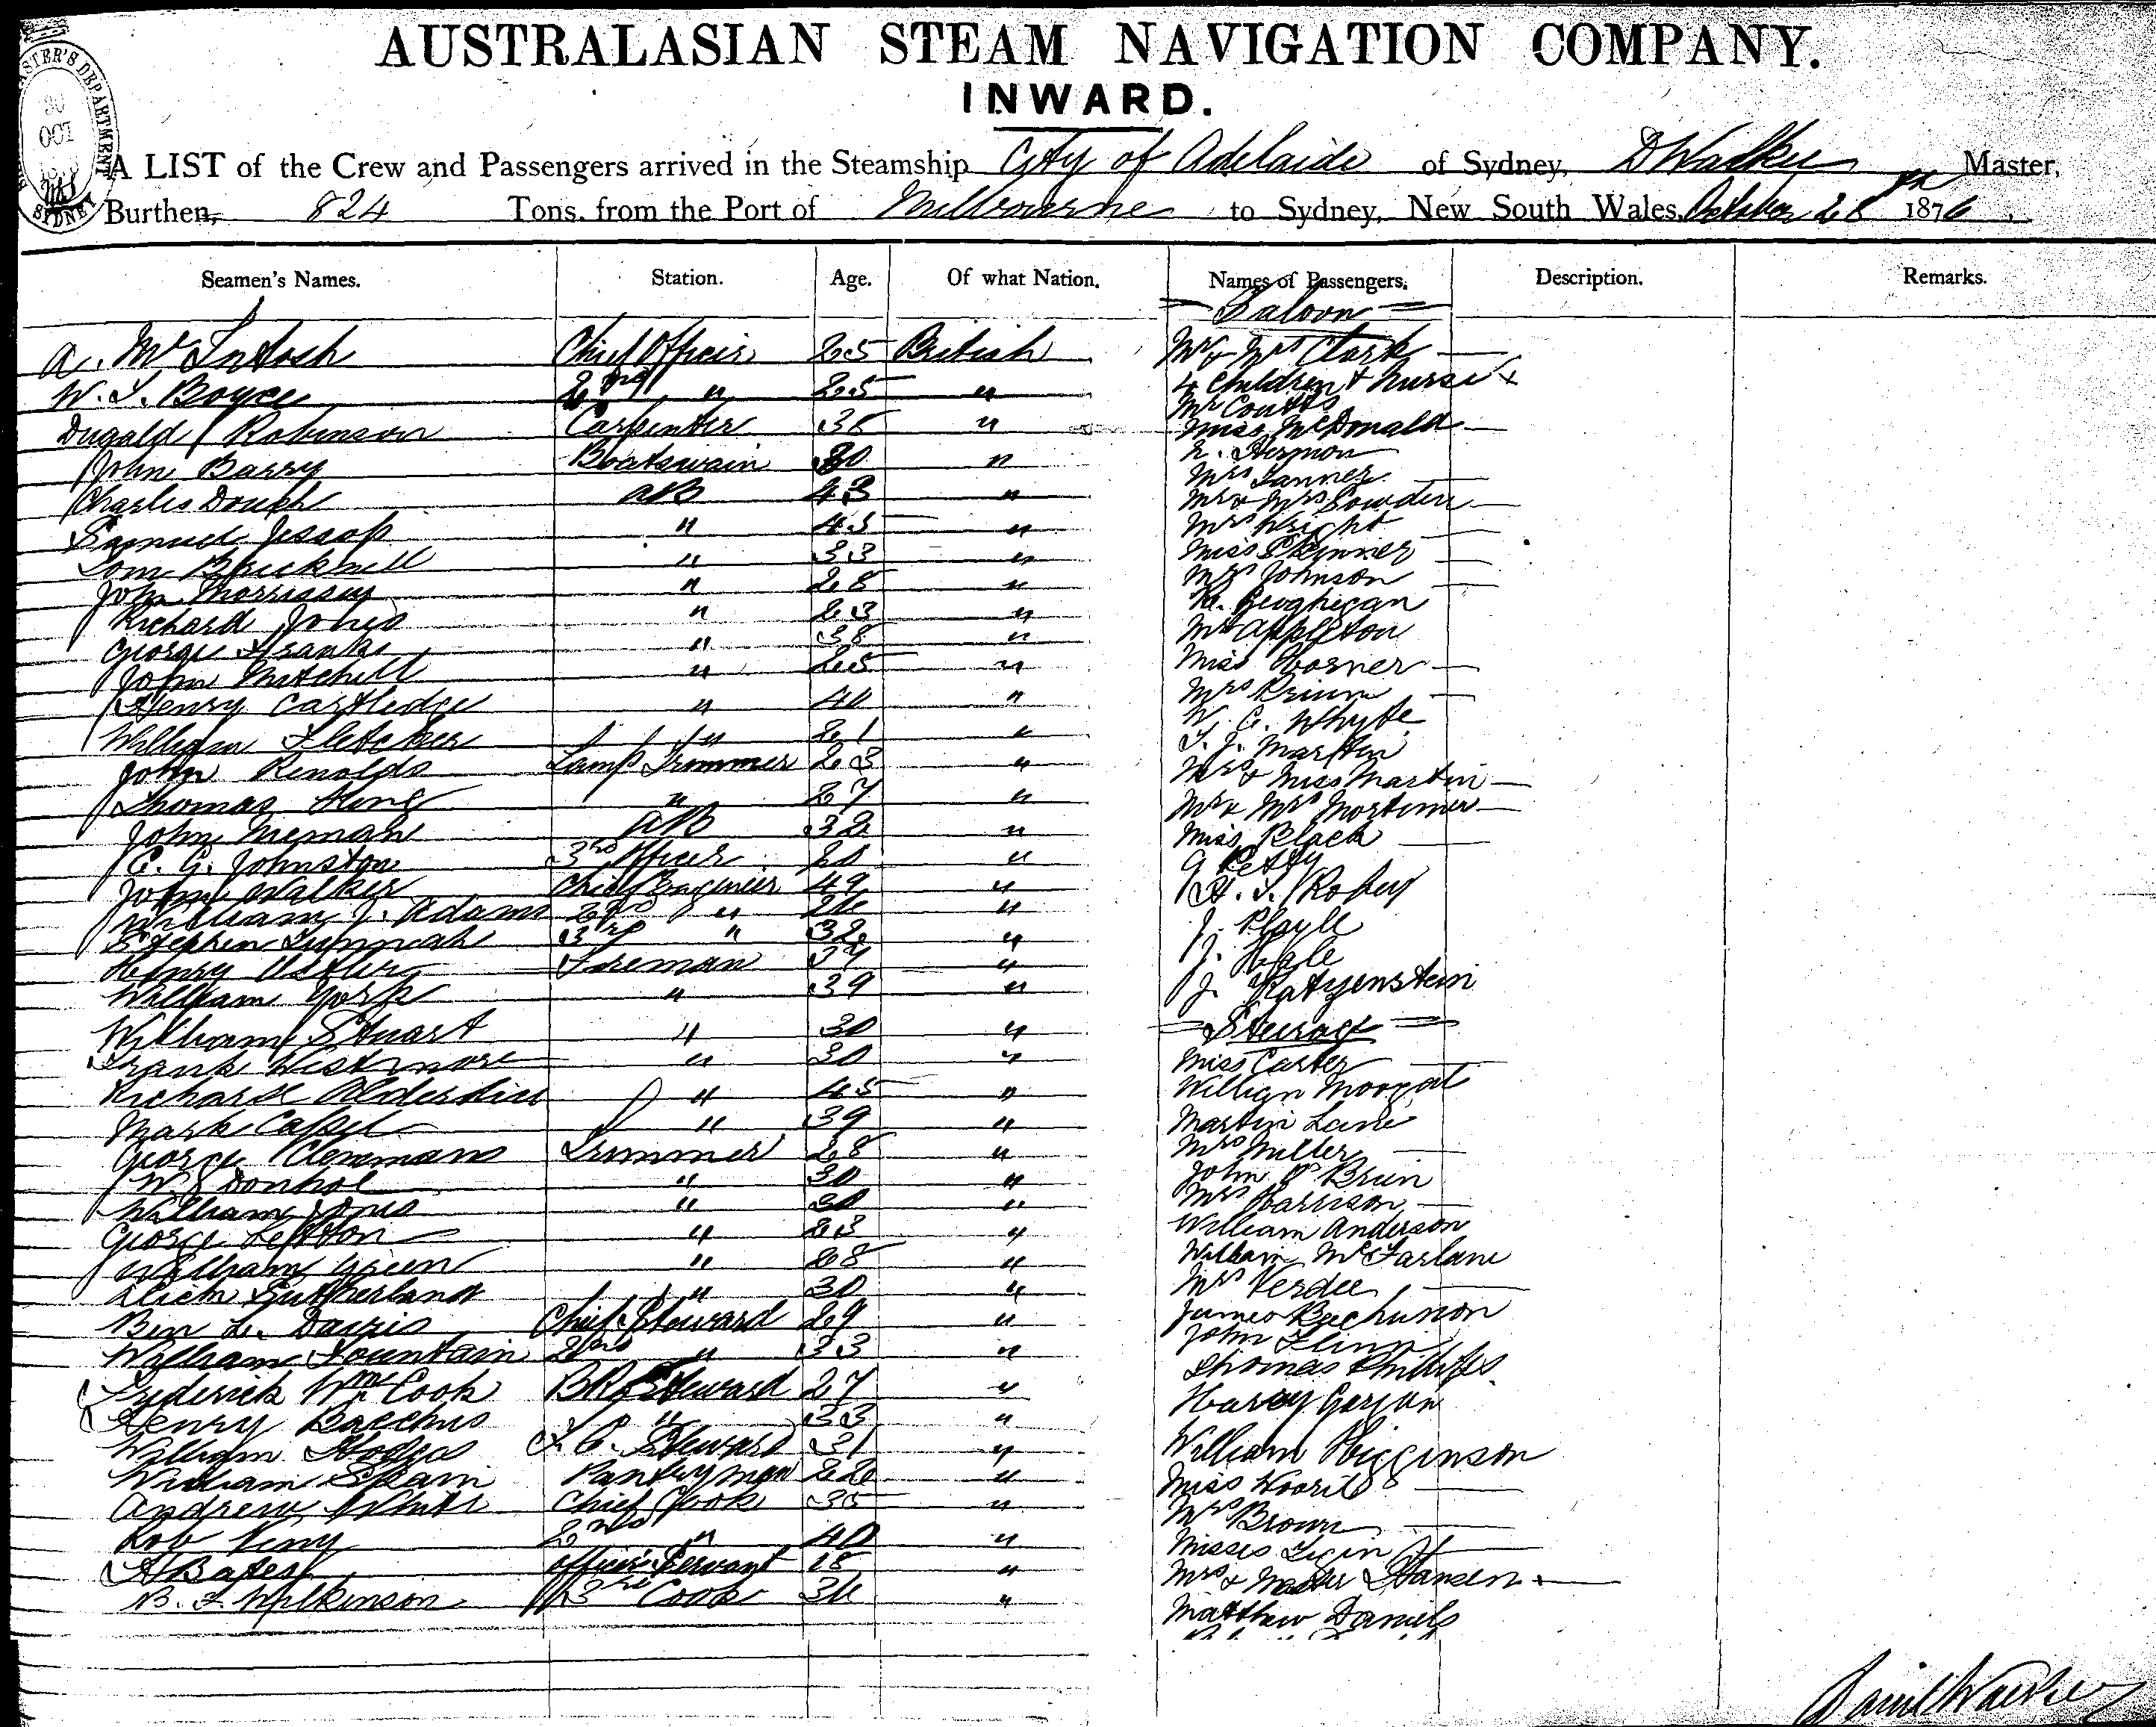 AUSTRALASIAN STEAM NAVIGATION COMPANY.
INWARD.
OCT
SYDNEY
A LIST of the Crew and Passengers arrived in the Steamship City of Adelaide of Sydney, D Walker Master,
Burthen, 824 Tons, from the Port of Melbourne to Sydney, New South Wales, October 28 1876
Seamen's Names. Station. Age. Of what Nation. Names of Passengers. Description. Remarks.
Saloon
A. McIntosh Chief Officer 25 British Mr & Mrs Clark
W. J. Boyce 2nd " 25 " 4 Children & Nurse
Mr Coutts
Dugald Robinson Carpenter 36 " Miss McDonald
John Barry Boatswain 30 " Hermon
Mrs Tanner
Charles Dough AB 43 " Mr & Mrs Sowden
Samuel Jessop " 45 " Mrs Wright
Tom " 33 " Miss Skinner
John Morrissey " 28 " Mrs Johnson
Richard Jones " 23 " Geoghegan
George Franks " 38 " Mr Appleton
John Mitchell " 25 " Miss
Henry Cartledge " 40 " Mrs
William Fletcher " 21 " W. G. Whyte
T. J. Martin
John Renolds Lamp Trimmer 23 " Mrs & Miss Martin
Thomas King " 27 " Mr & Mrs Mortimer
John AB 32 " Miss Black
C. G. Johnston 3rd Officer 20 " G Petty
John Walker Chief Engineer 49 " H. S.
William J. Adams 2nd " 26 " J. Playle
Stephen 3rd " 32 " J. Hale
Henry Fireman 37 "
William York " 39 " J. Katzenstein
William Stuart " 30 " Steerage
Frank Westmore " 30 " Miss Carter
Richard Alderdice " 45 " William
Mark " 39 " Martin Lane
George Clemmans Trimmer 28 " Mrs Miller
W. " 30 " John O'Brien
William Jones " 30 " Mrs Harrison
George " 23 " William Anderson
William Green " 28 " William McFarlane
Sutherland " 30 " Mrs Verdee
Ben L. Chief Steward 29 " James
William Fountain 2nd " 33 " John Flinn
Frederick Wm Cook Steward 27 " Thomas Phillips
Henry Bacchus " 33 " Harvey
William Hodges Steward 31 " William Higginson
William Pantryman 22 " Miss
Andrew White Chief Cook 35 " Mrs Brown
Rob King 2nd " 40 " Misses
A Bates Officers Servant 18 " Mrs & Master Hansen
B. F. Wilkinson 3rd Cook 36 " Matthew Daniels